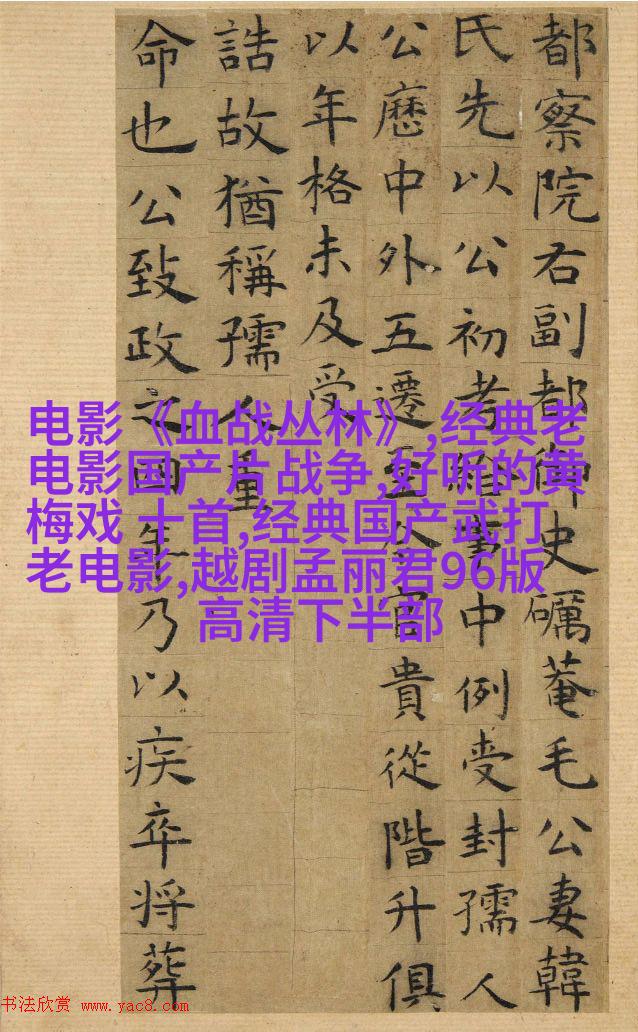 都察院右副都御史礪菴毛公妻韓
氏先以公初考給事中例受封孺人
公歷中外五遷至今官貴從階升俱
以年格未及受
誥故猶稱孺人重
命也公致政之四年乃以疾卒將葬
电影《血战丛林》,经典老
电影国产片战争,好听的黄
梅戏 十首,经典国产武打
老电影,越剧孟丽君96版
高清下半部
书法欣赏 www.yac8.com